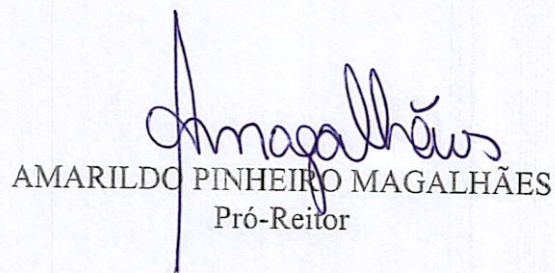 Amagalhães
AMARILDO PINHEIRO MAGALHÃES
Pró-Reitor